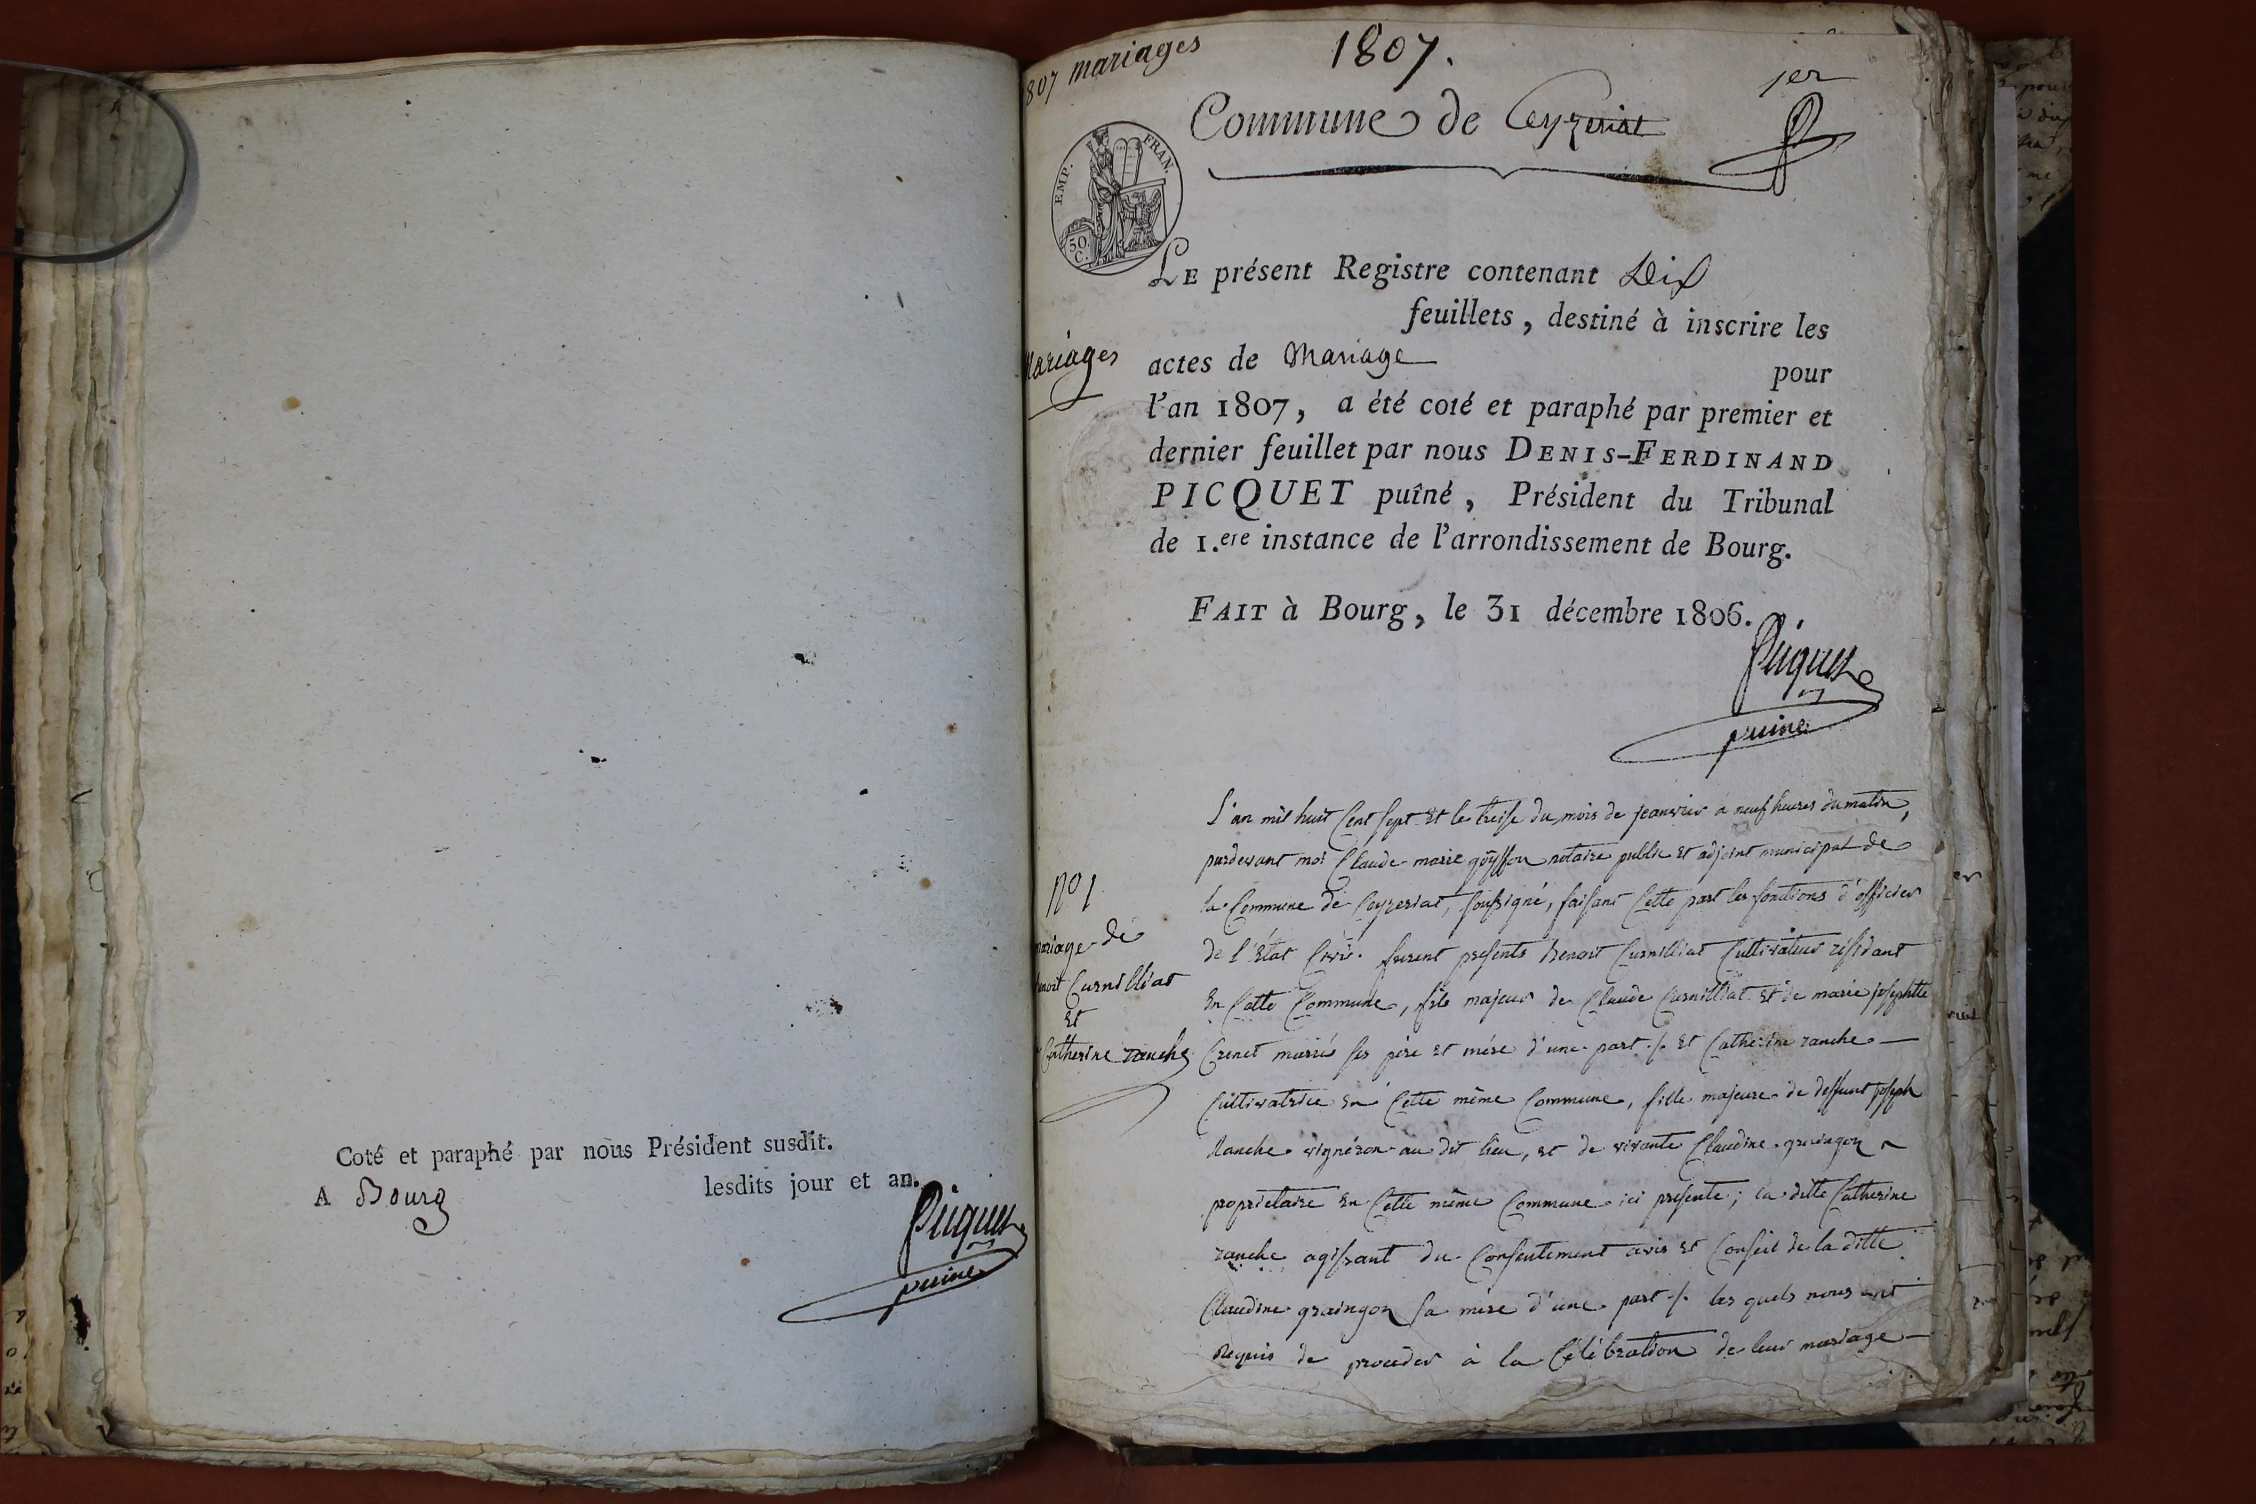 Coté et paraphé par nous Président susdit.
A Bourg lesdits jour et an.
Picquet
puiné
1807 mariages
1807.
1er
Commune de Ceyzeriat
EMP. FRAN.
50 C.
LE présent Registre contenant Dix
feuillets, destiné à inscrire les
mariages
actes de Mariage pour
l'an 1807, a été coté et paraphé par premier et
dernier feuillet par nous DENIS-FERDINAND
PICQUET puîné, Président du Tribunal
de 1.ere instance de l'arrondissement de Bourg.
FAIT à Bourg, le 31 décembre 1806.
Picquet
puiné
nº 1
mariage de
benoit Curnilliat
et
Catherine ranche
L'an mil huit Cent sept et le treise du mois de jeanvier a neuf heures du matin,
pardevant moi Claude-marie goÿffon notaire public et adjoint municipal de
la Commune de Ceyzeriat, soussigné, faisant Cette part les fonctions d'officier
de l'état Civil. furent presents benoit Curnilliat Cultivateur résidant
en Cette Commune, fils majeur de Claude Curnilliat et de marie josephtte
Crenet mariés ses père et mére d'une part ./. et Catherine ranche
Cultivatrice en Cette même Commune, fille majeure de deffunt joseph
Ranche vignéron au dit lieu, et de vivante Claudine graingon
proprietaire en Cette même Commune ici presente; la ditte Catherine
ranche agissant du Consentement avis et Conseil de la ditte
Claudine graingon sa mére d'une part ./. les quels nous ont
Requis de proceder à la Célébration de leur mariage